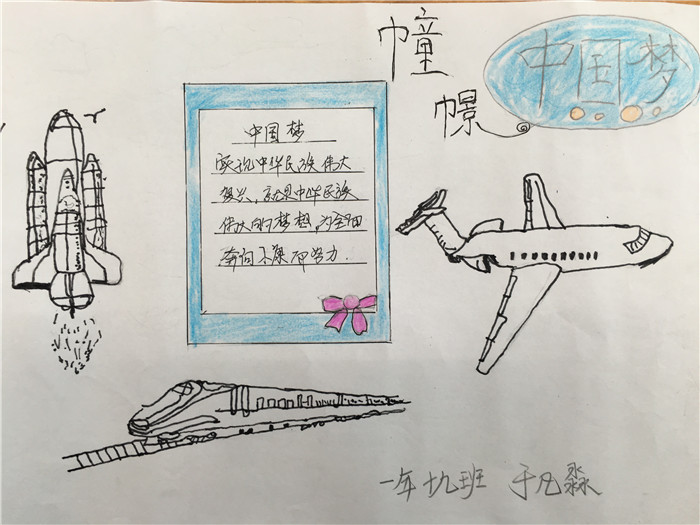 憧憬
中国梦
中国梦
实现中华民族伟大
复兴，就是中华民族
伟大的梦想，为全面
奔向小康而努力．
一年九班 于凡淼